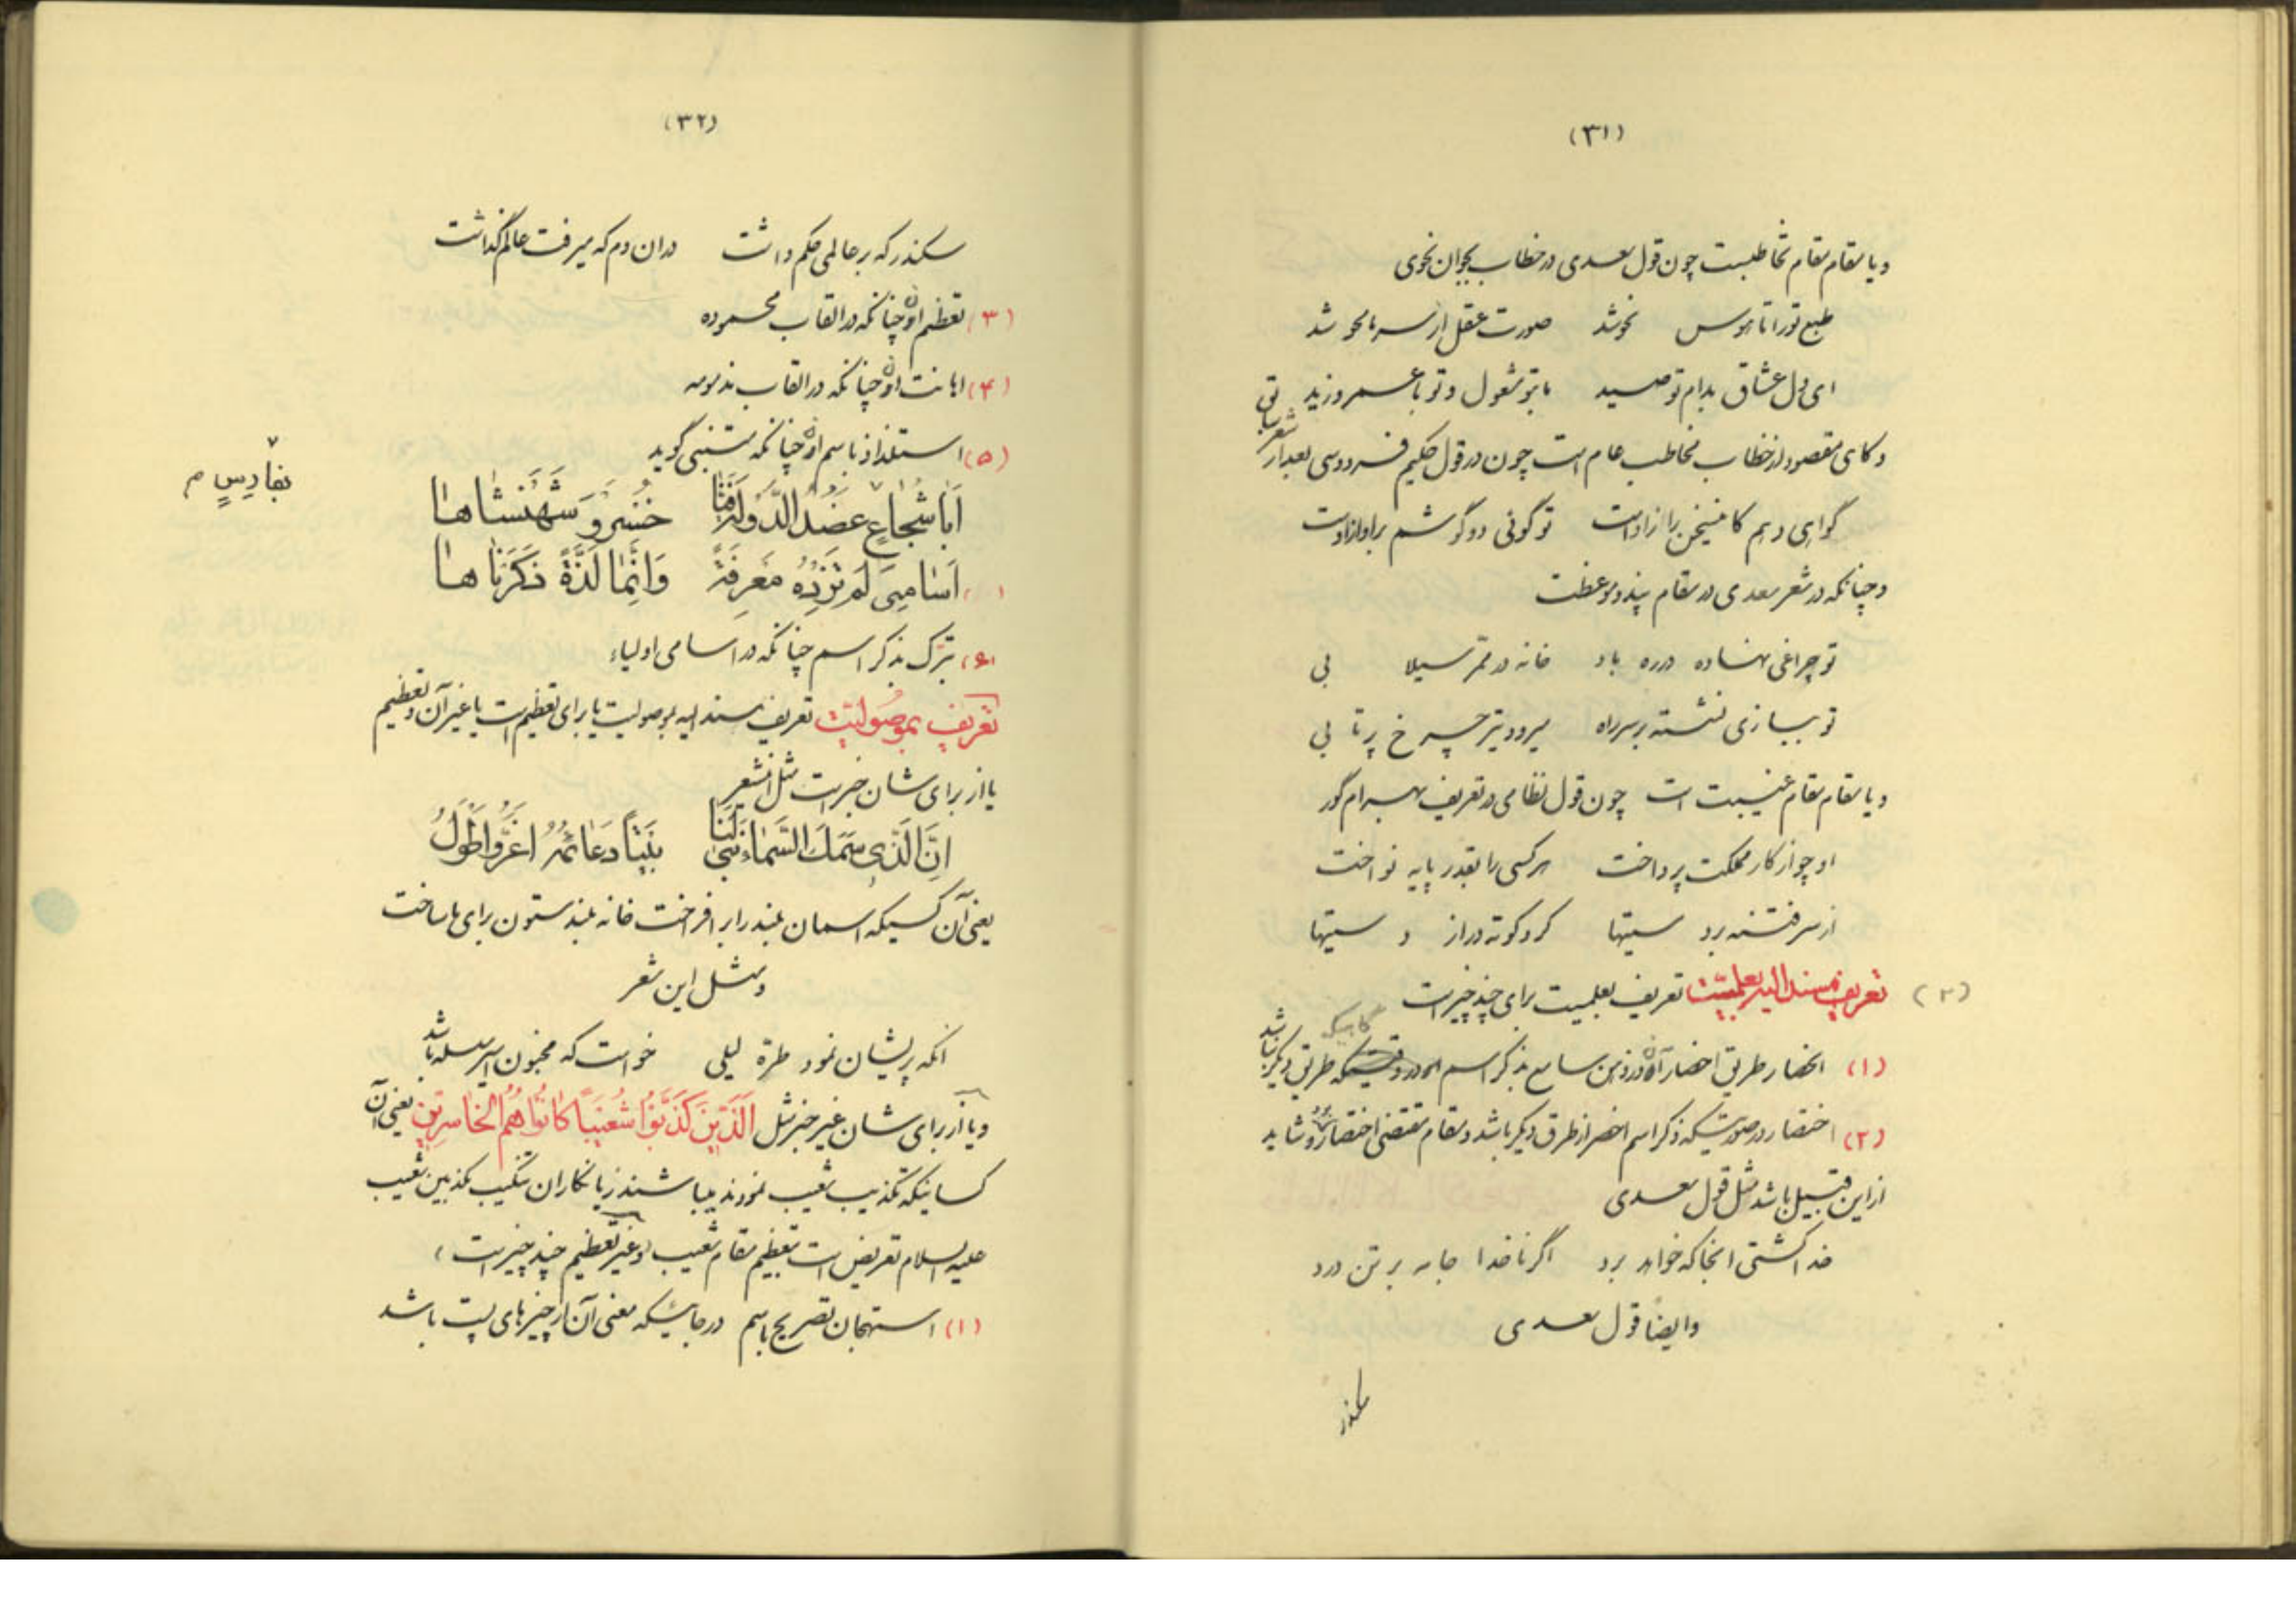 (۳۱)
و یا مقام مقام تخاطبست چون قول سعدی در خطاب بجوان نحوی
طبع تو را تا هوس نحو شد صورت عقل از سر ما محو شد
ای دل عشاق بدام تو صید ما بتو مشغول و تو با عمرو و زید
و گاهی مقصود از خطاب مخاطب عام است چون در قول حکیم فردوسی بعد از شعر سابق
گواهی دهم کاین سخن راز اوست تو گوئی دو گوشم بر آواز اوست
و چنانکه در شعر سعدی در مقام پند و موعظت
تو چراغی نهاده در ره باد خانه در ممر سیلابی
تو ببازی نشسته بر سر راه میرود تیر چرخ پرتابی
و یا مقام مقام غیبت است چون قول نظامی در تعریف بهرام گور
او چو از کار مملکت پرداخت هر کسی را بقدر پایه نواخت
از سر فتنه برد مستیها کرد کوته دراز دستیها
(۲) تعریف مسند الیه بعلمیّت تعریف بعلمیت برای چند چیز است
(۱) انحصار طریق احضار آن در ذهن سامع بذکر اسم او در گاهیکه طریق دیگر نباشد
(۲) اختصار در صورتیکه ذکر اسم اخصر از طرق دیگر باشد و مقام مقتضی اختصار بود و شاید
از این قبیل باشد مثل قول سعدی
خدا کشتی آنجا که خواهد برد اگر ناخدا جامه بر تن درد
و ایضا قول سعدی
سکندر
(۳۲)
سکندر که بر عالمی حکم داشت در آن دم که میرفت عالم گذاشت
(۳) تعظیم او چنانکه در القاب محموده
(۴) اهانت او چنانکه در القاب مذمومه
(۵) استلذاذ باسم او چنانکه متنبی گوید
بفارِسٍ م
اَبا شُجاعٍ عَضُدَ الدَّولَةِ فَنّا خُسْرو شَهَنْشاها
اَسامِیَ لَمْ تَزِدْهُ مَعْرِفَةً وَاِنَّمٰا لَذَّةً ذَکَرْنٰاها
(۶) تبرّک بذکر اسم چنانکه در اسامی اولیاء
تَعْریفِ بِمَوصُولیّت تعریف مسند الیه بموصولیت یا برای تعظیم است یا غیر آن و تعظیم
یا از برای شان خبر است مثل این شعر
اِنَّ الَّذی سَمَكَ السَّماءَ بَنیٰ لَنا بَیْتاً دَعائِمُهُ اَعَزُّ وَاَطْوَلُ
یعنی آن کسیکه آسمان بلند را بر افراخت خانه بلند ستون برای ما ساخت
و مثل این شعر
آنکه پریشان نمود طرّه لیلی خواست که مجنون اسیر سلسله باشد
و یا از برای شان غیر خبر مثل اَلَّذینَ کَذَّبُوا شُعَیْباً کانُوا هُمُ الْخاسِرینَ یعنی آن
کسانیکه تکذیب شعیب نمودند میباشند زیانکاران تکذیب مکذبین شعیب
علیه السلام تعریض است بتعظیم مقام شعیب (و غیر تعظیم چند چیز است)
(۱) استهجان تصریح باسم در جائیکه معنی آن از چیزهای پست باشد